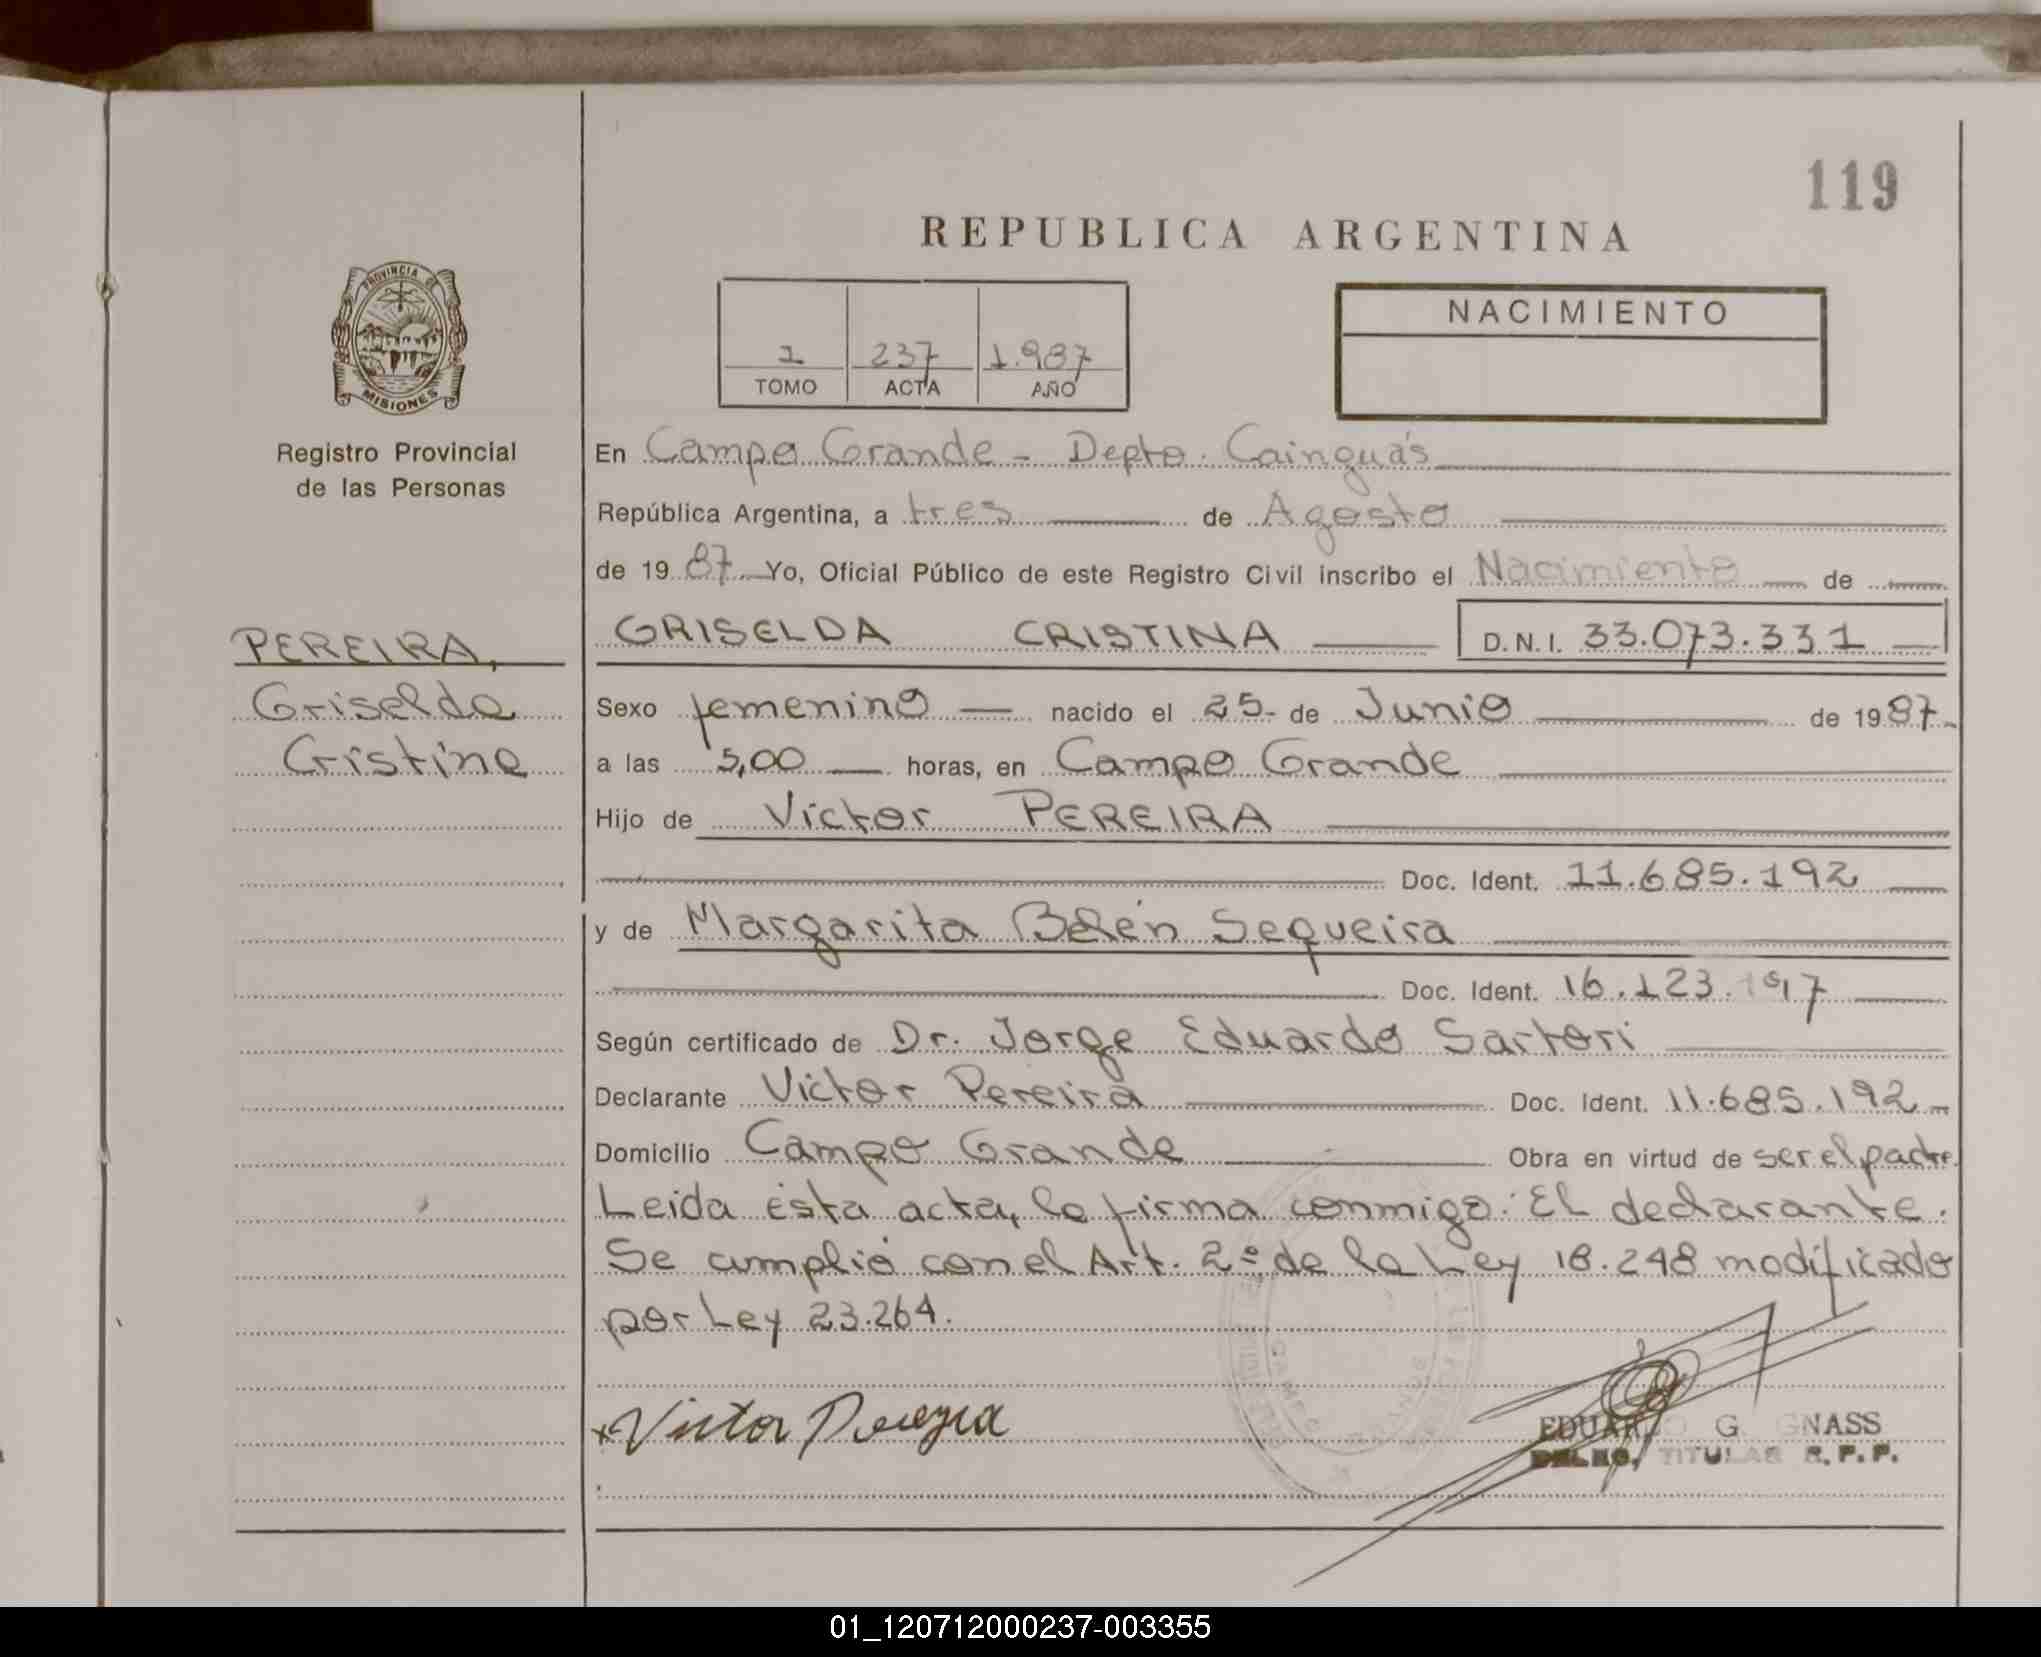 119
REPUBLICA ARGENTINA
PROVINCIA DE
MISIONES
Registro Provincial
de las Personas
1 237 1.987
TOMO ACTA AÑO
NACIMIENTO
En Campo Grande - Depto. Cainguás
República Argentina, a tres de Agosto
de 1987. Yo, Oficial Público de este Registro Civil inscribo el Nacimiento de
GRISELDA CRISTINA D.N.I. 33.073.331
PEREIRA,
Griselda
Cristina
Sexo femenino nacido el 25- de Junio de 1987-
a las 5,00 horas, en Campo Grande
Hijo de Victor PEREIRA
Doc. Ident. 11.685.192
y de Margarita Belén Sequeira
Doc. Ident. 16.123.197
Según certificado de Dr. Jorge Eduardo Sartori
Declarante Victor Pereira Doc. Ident. 11.685.192-
Domicilio Campo Grande Obra en virtud de ser el padre.
Leida ésta acta, la firma conmigo: El declarante.
Se cumplió con el Art. 2º de la Ley 18.248 modificado
por Ley 23.264.
x Victor Pereyra
EDUARDO G. GNASS
DELEG. TITULAR R.P.P.
01_120712000237-003355